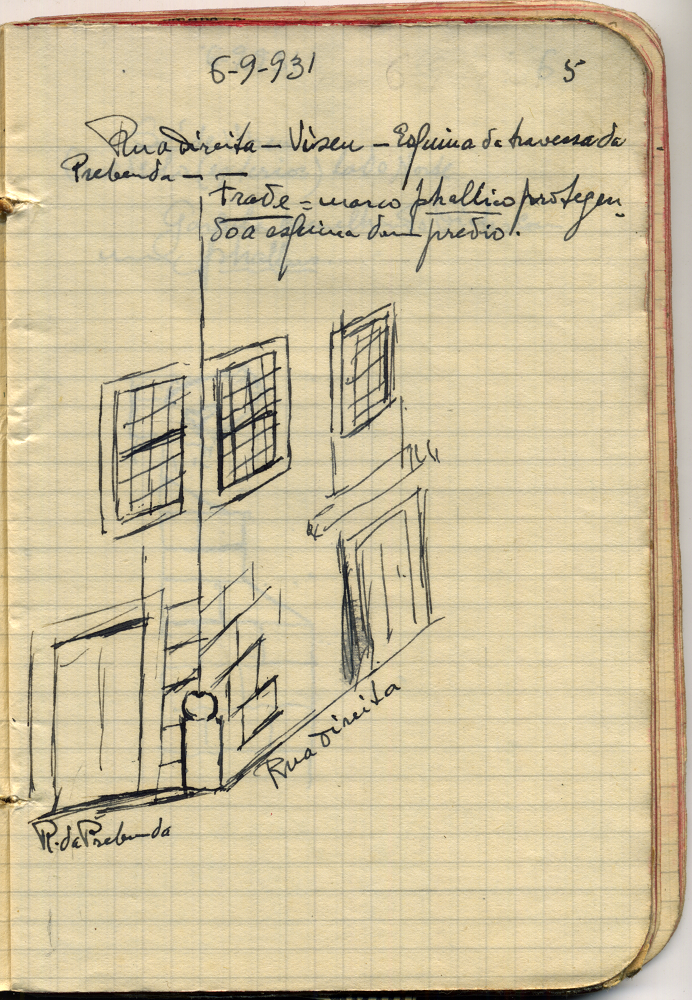 6-9-931
5
Rua Direita - Viseu - Esquina da travessa da
Prebenda -
Frade = marco phallico protegen-
do a esquina dum predio.
Rua Direita
R. da Prebenda